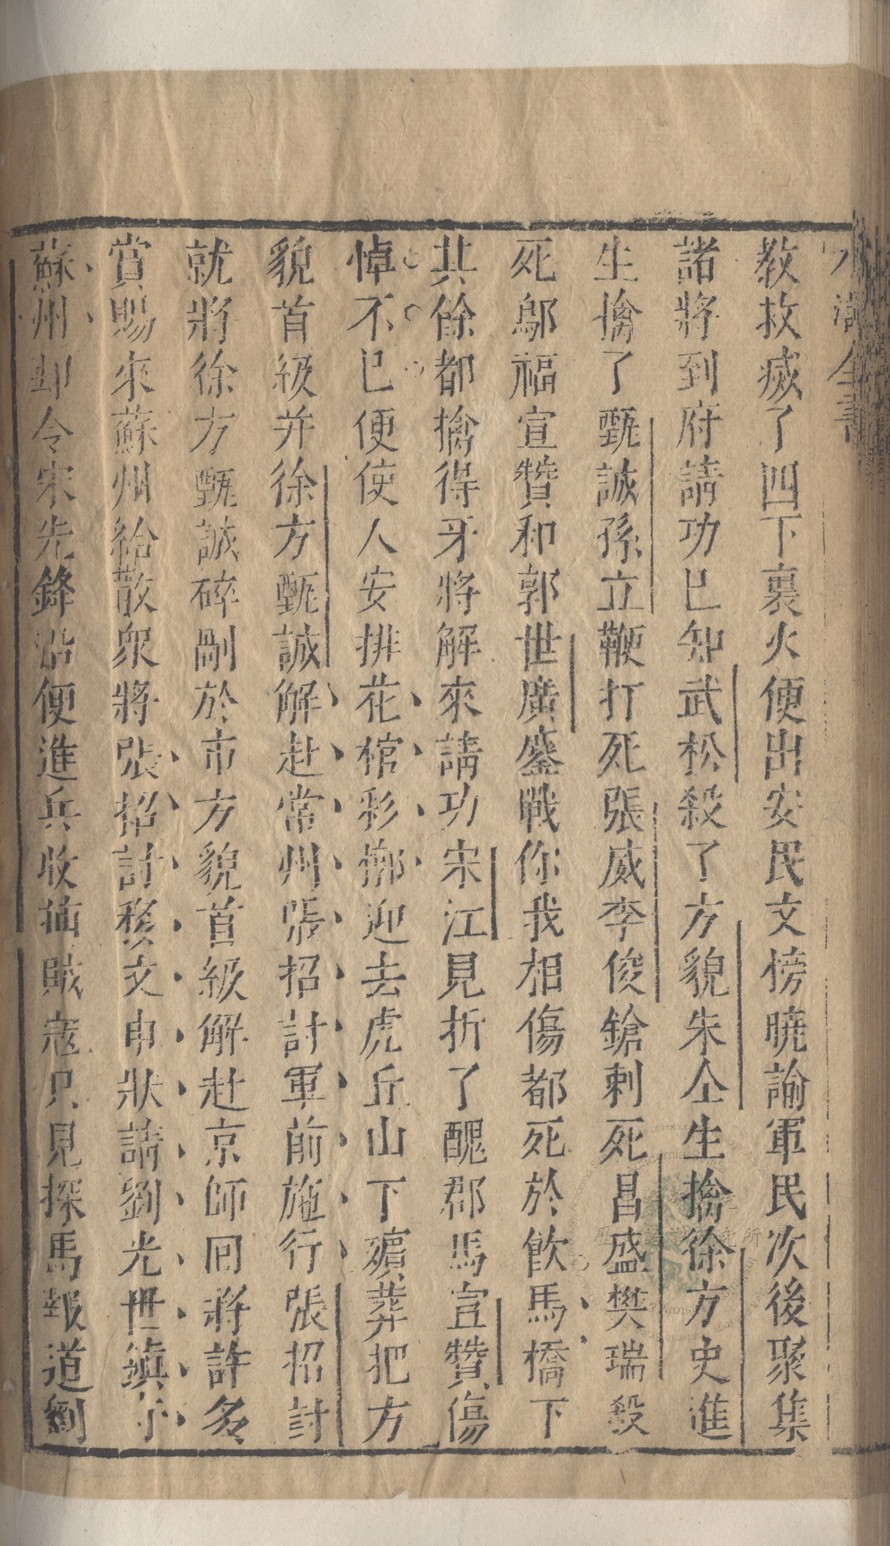 水滸全書
教救滅了四下裏火便出安民文榜曉諭軍民次後聚集
諸將到府請功已知武松殺了方貌朱仝生擒徐方史進
生擒了甄誠孫立鞭打死張威李俊鎗刺死昌盛樊瑞殺
死鄔福宣贊和郭世廣鏖戰你我相傷都死於飲馬橋下
其餘都擒得牙將解來請功宋江見折了醜郡馬宣贊傷
悼不已便使人安排花棺彩槨迎去虎丘山下殯葬把方
貌首級并徐方甄誠解赴常州張招討軍前施行張招討
就將徐方甄誠碎剮於市方貌首級解赴京師回將許多
賞賜來蘇州給散衆將張招討移文申狀請劉光世鎮守
蘇州却令宋先鋒沿便進兵收捕賊寇只見探馬報道劉